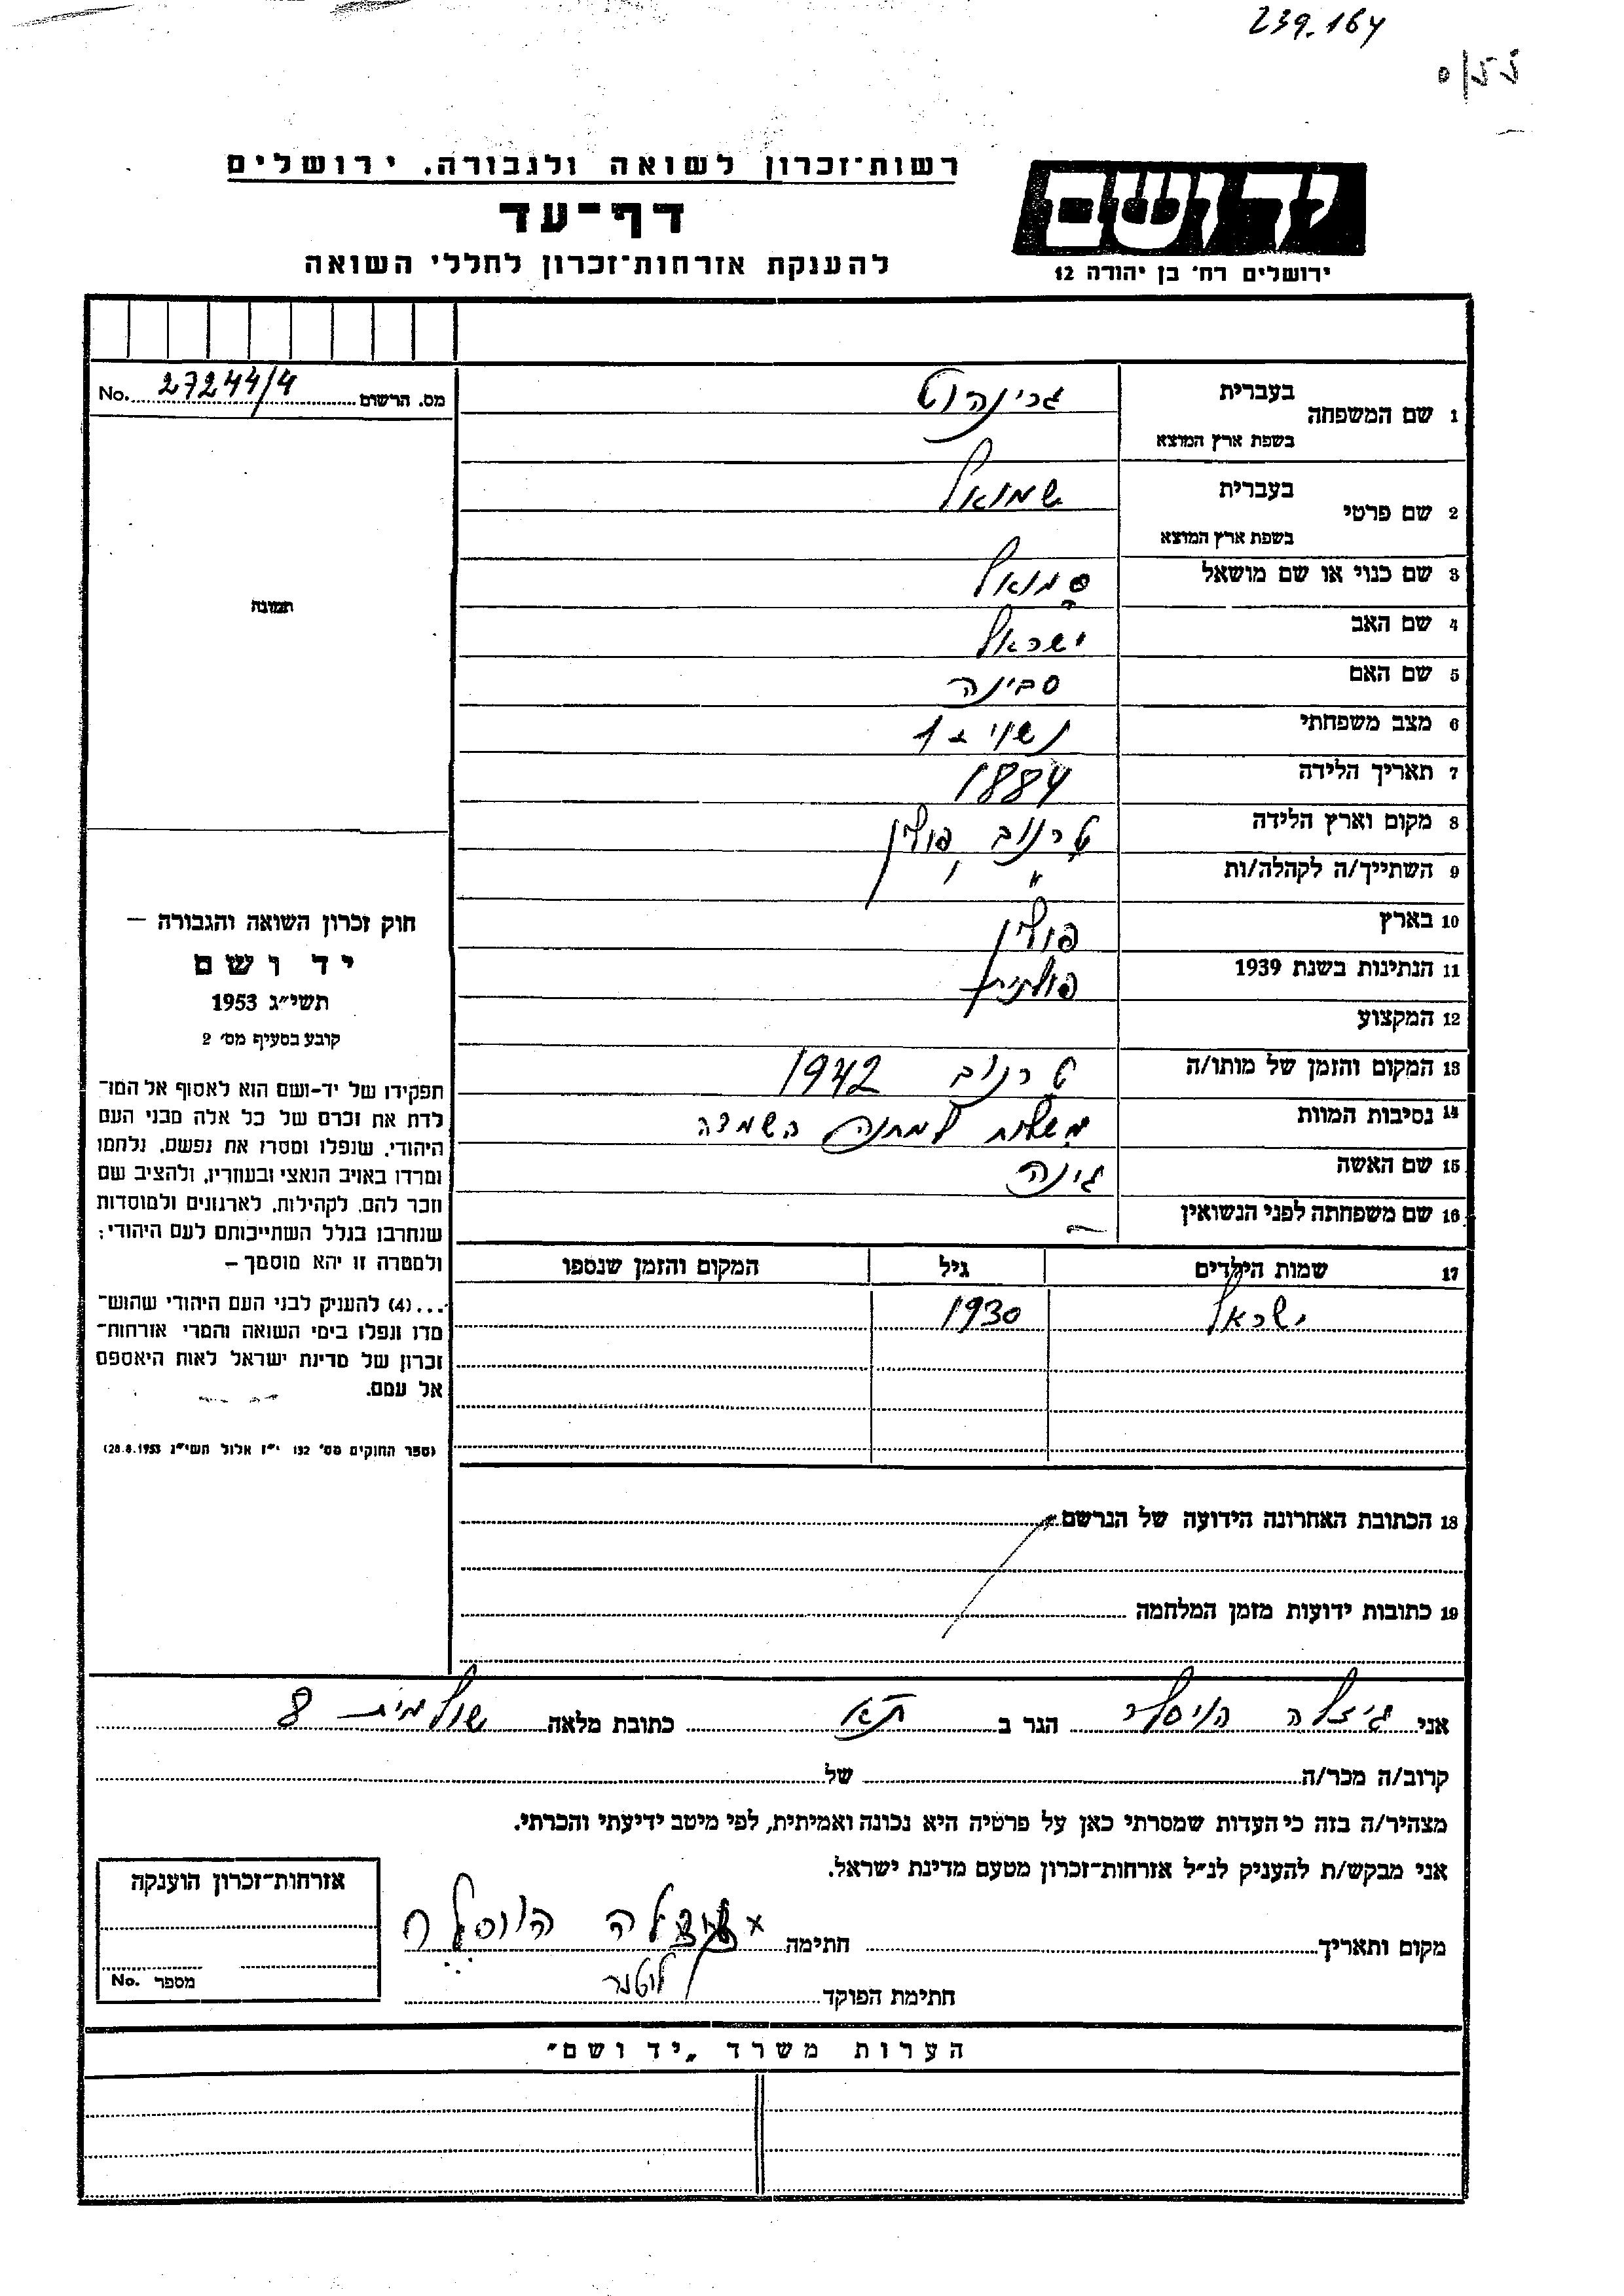 239.164
רשות־זכרון לשואה ולגבורה, ירושלים
דף־עד
להענקת אזרחות־זכרון לחללי השואה
יד ושם
ירושלים רח' בן יהודה 12
מס. הרשום 27244/4 No.
1 שם המשפחה
בעברית גרינהוט
בשפת ארץ המוצא
2 שם פרטי
בעברית שמואל
בשפת ארץ המוצא
3 שם כנוי או שם מושאל סמואל
4 שם האב ישראל
5 שם האם סבינה
6 מצב משפחתי נשוי + 1
7 תאריך הלידה 1884
8 מקום וארץ הלידה טרנוב, פולין
9 השתייך/ה לקהלה/ות "
10 בארץ פולין
11 הנתינות בשנת 1939 פולנית
12 המקצוע
13 המקום והזמן של מותו/ה טרנוב 1942
14 נסיבות המוות משלוח למחנה השמדה
15 שם האשה גינה
16 שם משפחתה לפני הנשואין —
17 שמות הילדים גיל המקום והזמן שנספו
ישראל 1930
18 הכתובת האחרונה הידועה של הנרשם
19 כתובות ידועות מזמן המלחמה
תמונה
חוק זכרון השואה והגבורה —
יד ושם
תשי״ג 1953
קובע בסעיף מס׳ 2
תפקידו של יד-ושם הוא לאסוף אל המו־
לדת את זכרם של כל אלה מבני העם
היהודי, שנפלו ומסרו את נפשם, נלחמו
ומרדו באויב הנאצי ובעוזריו, ולהציב שם
וזכר להם, לקהילות, לארגונים ולמוסדות
שנחרבו בגלל השתייכותם לעם היהודי;
ולמטרה זו יהא מוסמך –
...(4) להעניק לבני העם היהודי שהוש־
מדו ונפלו בימי השואה והמרי אזרחות־
זכרון של מדינת ישראל לאות היאספם
אל עמם.
(ספר החוקים מס׳ 132 י״ז אלול תשי״ג 28.8.1953)
אני גיזלה הויסלר הגר ב ת״א כתובת מלאה שולמית 8
קרוב/ה מכר/ה של
מצהיר/ה בזה כי העדות שמסרתי כאן על פרטיה היא נכונה ואמיתית, לפי מיטב ידיעתי והכרתי.
אני מבקש/ת להעניק לנ״ל אזרחות-זכרון מטעם מדינת ישראל.
מקום ותאריך חתימה
חתימת הפוקד
אזרחות־זכרון הוענקה
מספר No.
הערות משרד „יד ושם״